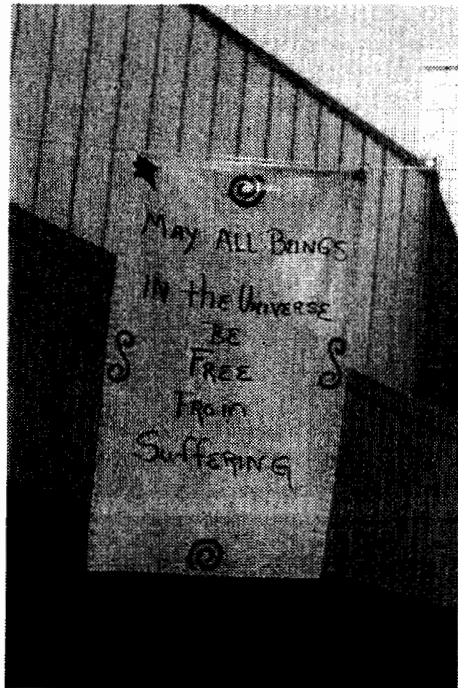 MAY ALL BEINGS
IN the UNIVERSE
BE
FREE
FROM
SUFFERING